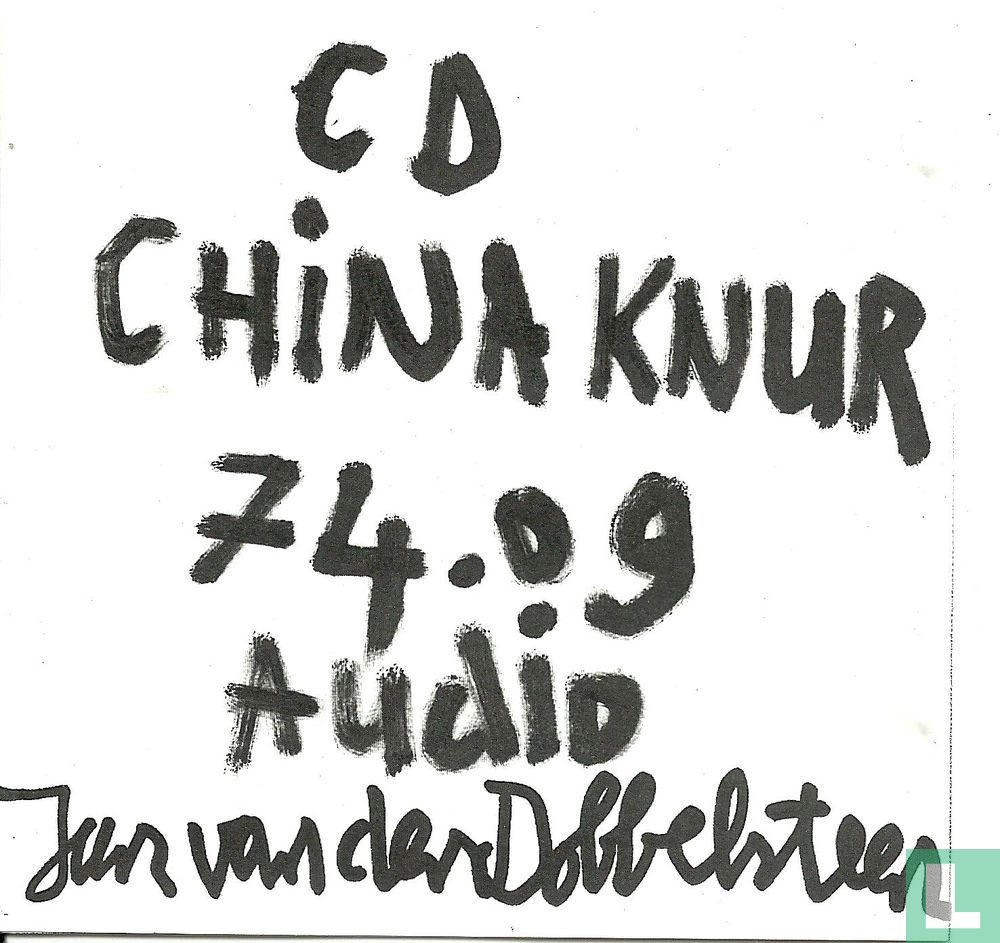 CD
CHiNA KNUR
74.09
Audio
Jan van den Dobbelsteen
L